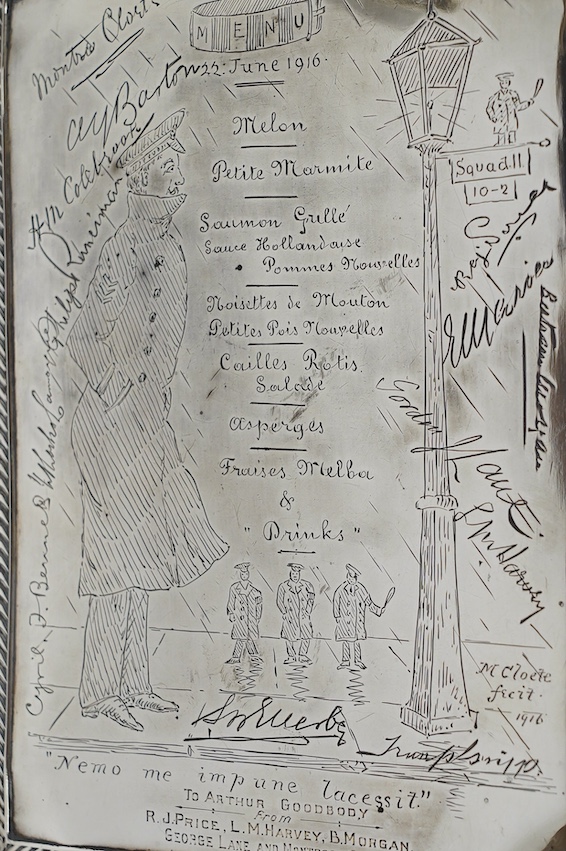 MENU
22: June 1916.
Melon
Petite Marmite
Saumon Grillé
Sauce Hollandaise
Pommes Nouvelles
Noisettes de Mouton
Petites Pois Nouvelles
Cailles Rotis
Salade
Asperges
Fraises Melba
&
"Drinks"
Squad 11
10-2
AG Barton
Philip Runciman
Cyril. F. Bennett
L M Harvey
M Cloete
fecit.
1916
"Nemo me impune lacessit."
TO ARTHUR GOODBODY
from
R.J. PRICE, L.M. HARVEY, B. MORGAN
GEORGE LANE AND